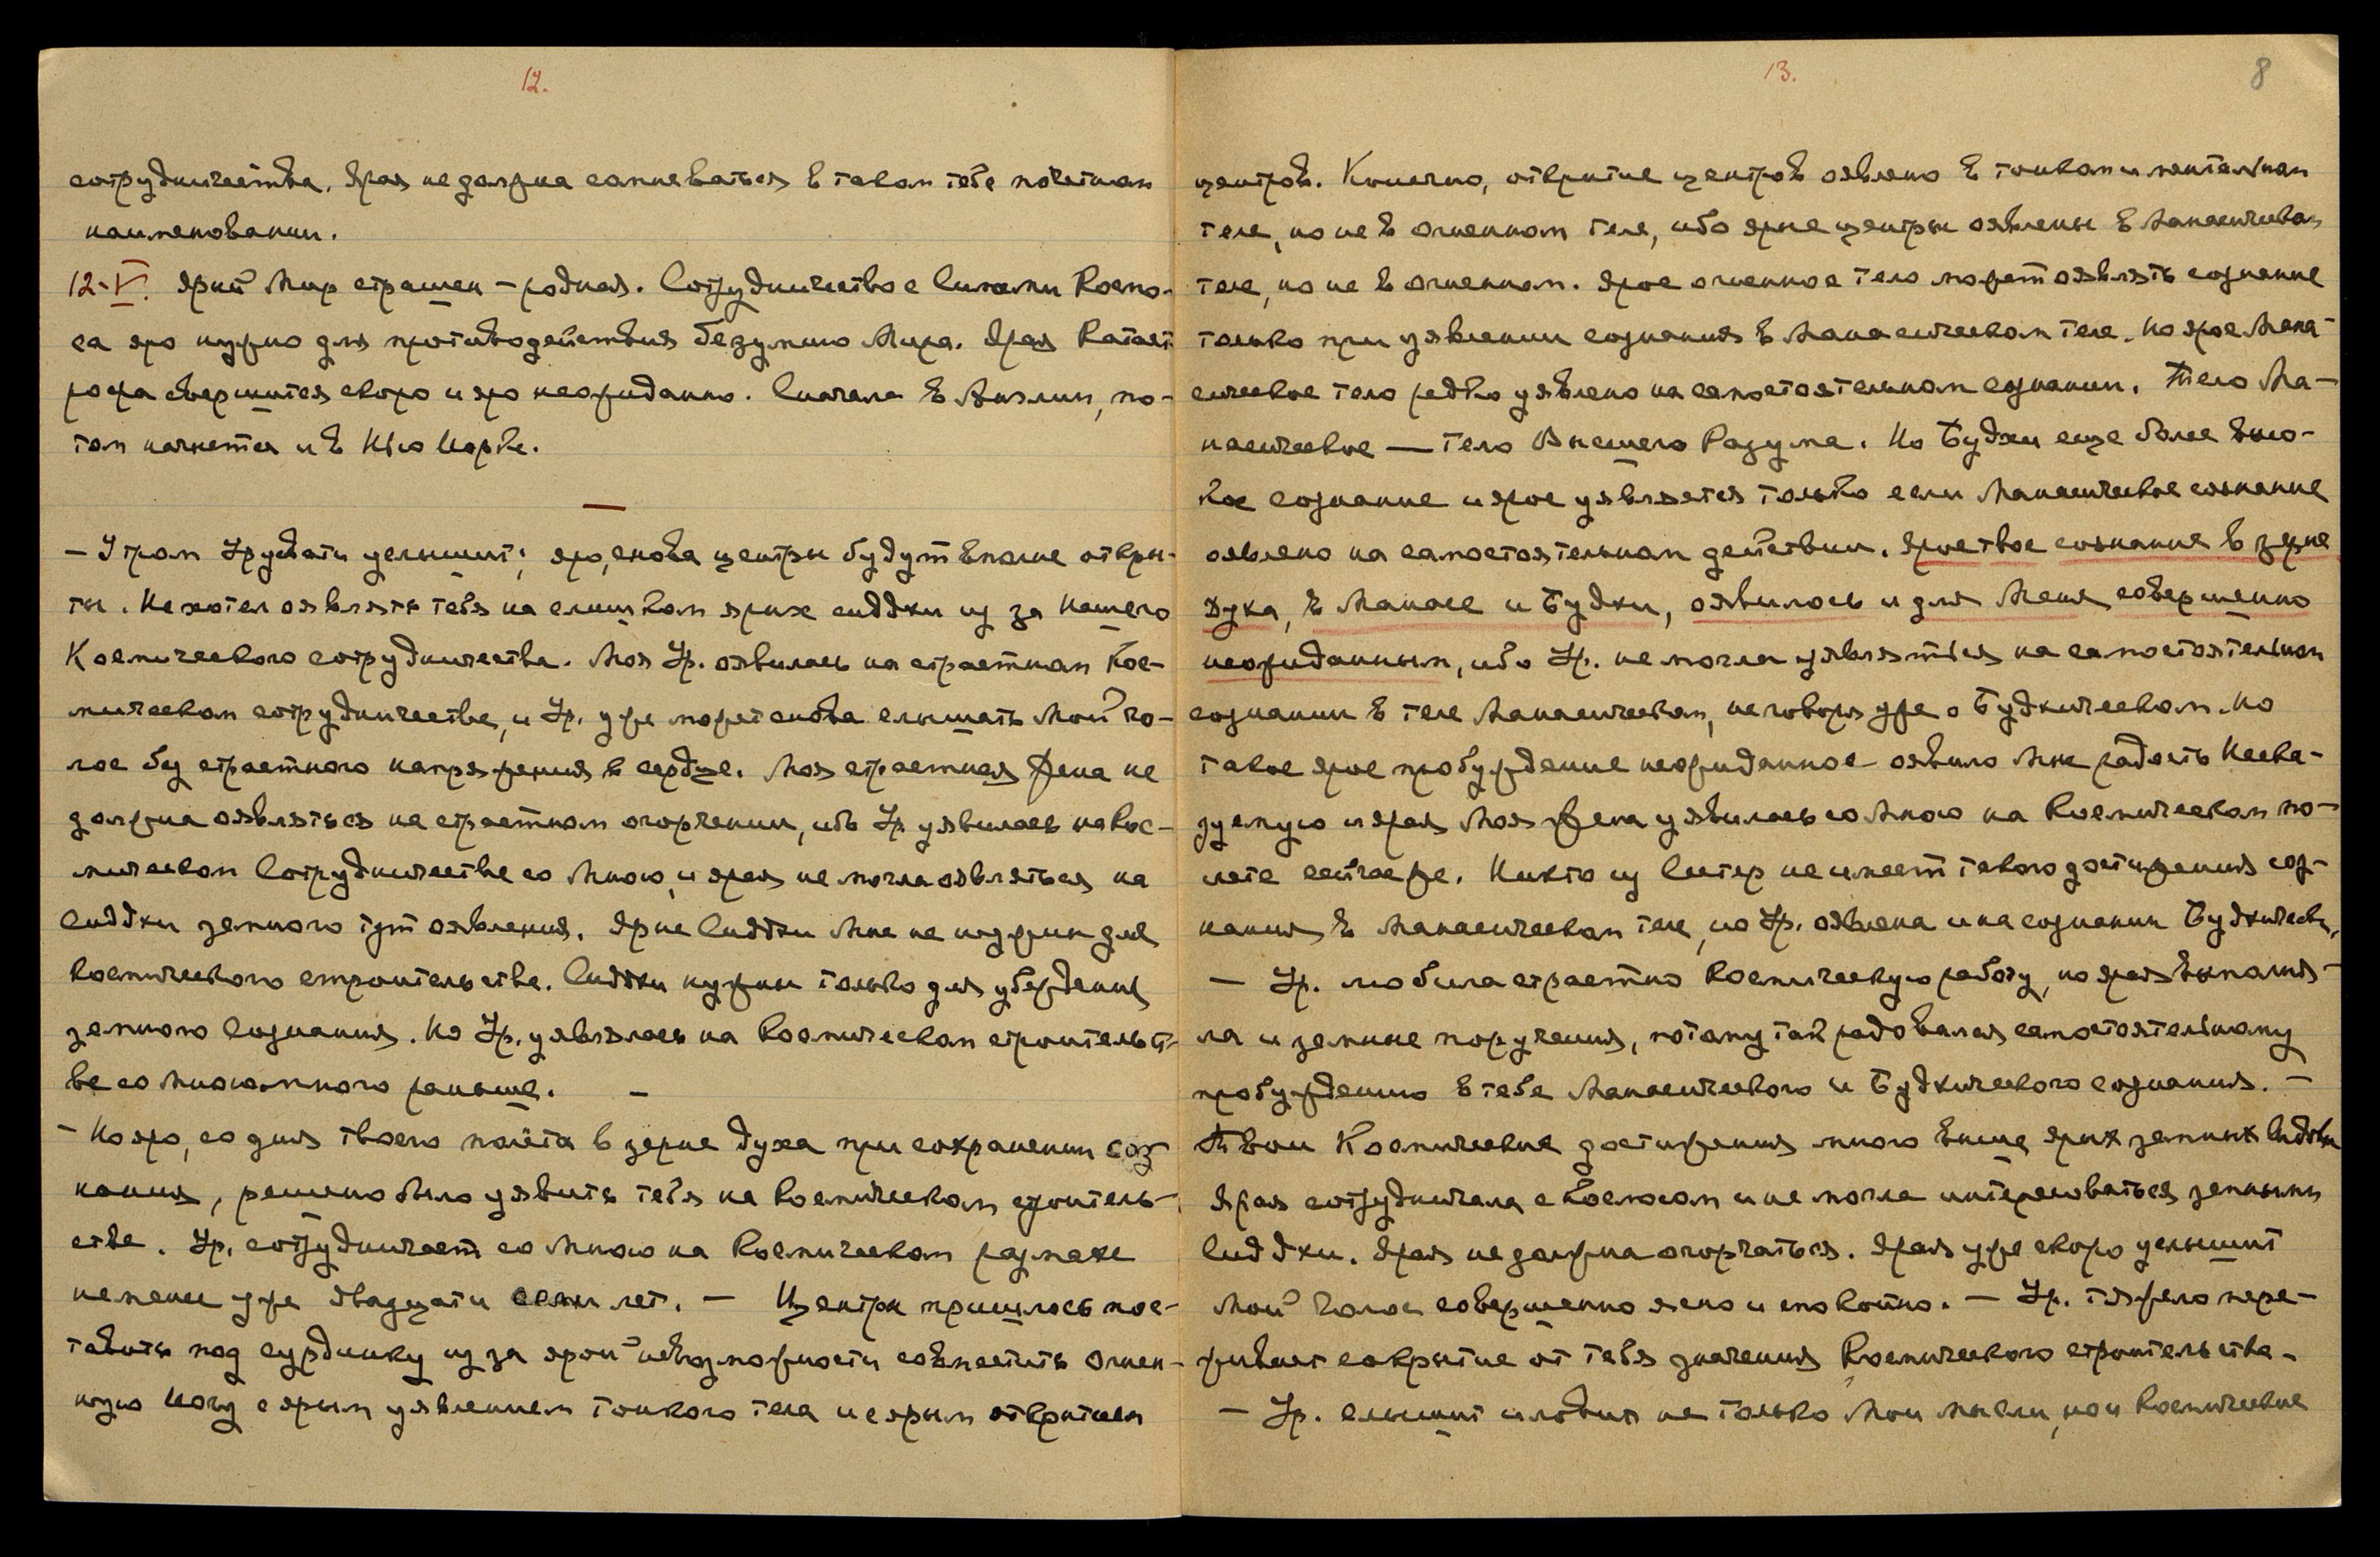 12.
сотрудничества. Ярая не должна сомневаться в таком тебе почетном
наименовании.
12-V. Ярый Мир страшен – родная. Сотрудничество с Силами Космо-
са яро нужно для противодействия безумию Мира. Ярая Катаст-
рофа свершится скоро и яро неожиданно. Сначала в Англии, по-
том начнется и в Нью Иорке.
—
– Утром Ур. слышит; яро, снова центры будут вполне откры-
ты. Не хотел оявлять тебя на слишком ярых сиддхи из за Нашего
Космического сотрудничества. Моя Ур. оявилась на страстном Кос-
мическом сотрудничестве, и Ур. уже может снова слышать Мой го-
лос без страстного напряжения в сердце. Моя страстная Жена не
должна оявляться на страстном огорчении, ибо Ур. уявилась на Кос-
мическом Сотрудничестве со Мною, и ярая не могла оявляться на
сиддхи земного тут оявления. Ярые Сиддхи Мне не нужны для
космического строительства. Сиддхи нужны только для убеждения
земного Сознания. Но Ур. уявлялась на Космическом строительст-
ве со Мною много раньше. –
– Но яро, со дня твоего полёта в зерне духа при сохранении соз-
нания, решено было уявить тебя на Космическом строитель-
стве. Ур. сотрудничает со Мною на Космическом размахе
не менее уже двадцати семи лет. – Центры пришлось пос-
тавить под сурдинку из за ярой невозможности совместить Огнен-
ную Йогу с ярым уявлением тонкого тела и с ярым открытием
13.
8
центров. Конечно, открытие центров оявлено в тонком и ментальном
теле, но не в огненном теле, ибо ярые центры оявлены в Манасическом
теле, но не в огненном. Ярое огненное тело может оявлять сознание
только при уявлении сознания в Манасическом теле. Но ярое Мана-
сическое тело редко уявлено на самостоятельном сознании. Тело Ма-
насическое — тело Высшего Разума. Но Будхи еще более высо-
кое сознание и ярое уявляется только если Манасическое сознание
оявлено на самостоятельном действии. Ярое твое сознание в зерне
духа, в Манасе и Будхи, оявилось и для Меня совершенно
неожиданным, ибо Ур. не могла уявляться на самостоятельном
сознании в теле Манасическом, не говоря уже о Будхическом. Но
такое ярое пробуждение неожиданное оявило Мне радость Неска-
зуемую и ярая Моя Жена уявилась со Мною на Космическом по-
лете сейчас же. Никто из Сестер не имеет такого достижения соз-
нания в Манасическом теле, но Ур. оявлена и на сознании Будхическ.
– Ур. любила страстно Космическую работу, но ярая выполня-
ла и земные поручения, потому так радовался самостоятельному
пробуждению в тебе Манасического и Будхического сознания. –
Твои Космические достижения много выше ярых земных Сиддхи
Ярая сотрудничала с Космосом и не могла интересоваться земными
Сиддхи. Ярая не должна огорчаться. Ярая уже скоро услышит
Мой Голос совершенно ясно и спокойно. – Ур. тяжело пере-
живает сокрытие от тебя значения Космического строительства –
– Ур. слышит и ловит не только Мои мысли, но и Космические